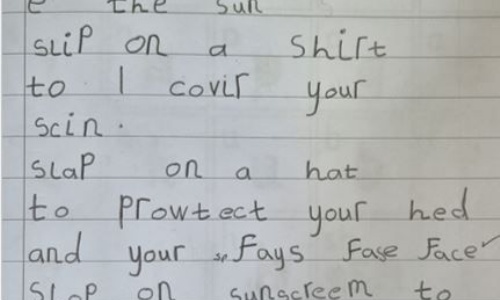 e the sun
slip on a shirt
to I covir your
scin.
slap on a hat
to prowtect your hed
and your fays fase face
slop on sunscreem to